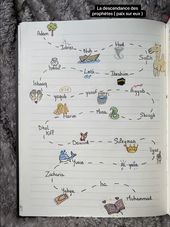 La descendance des
prophètes ( paix sur eux )
Adam
Idriss
Nuh
Hud
Salih
Lout
Ibrahim
Ishaaq
yaqub
yusuf
Ayyub
Harun
Musa
Shuayb
Dhul
Kifl
Dawud
Suleyman
Ilyas
Yunus
Zakaria
Yahya
Isa
Muhammad